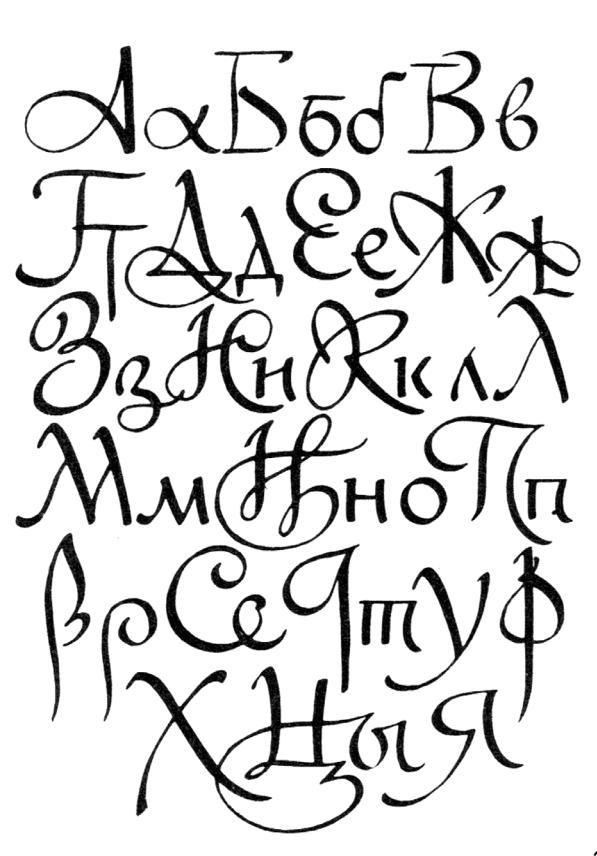 АаБббВв
ГгДдЕеЖж
ЗзИиКклЛ
МмНноПп
РрСсТтУф
ХЦыЯ